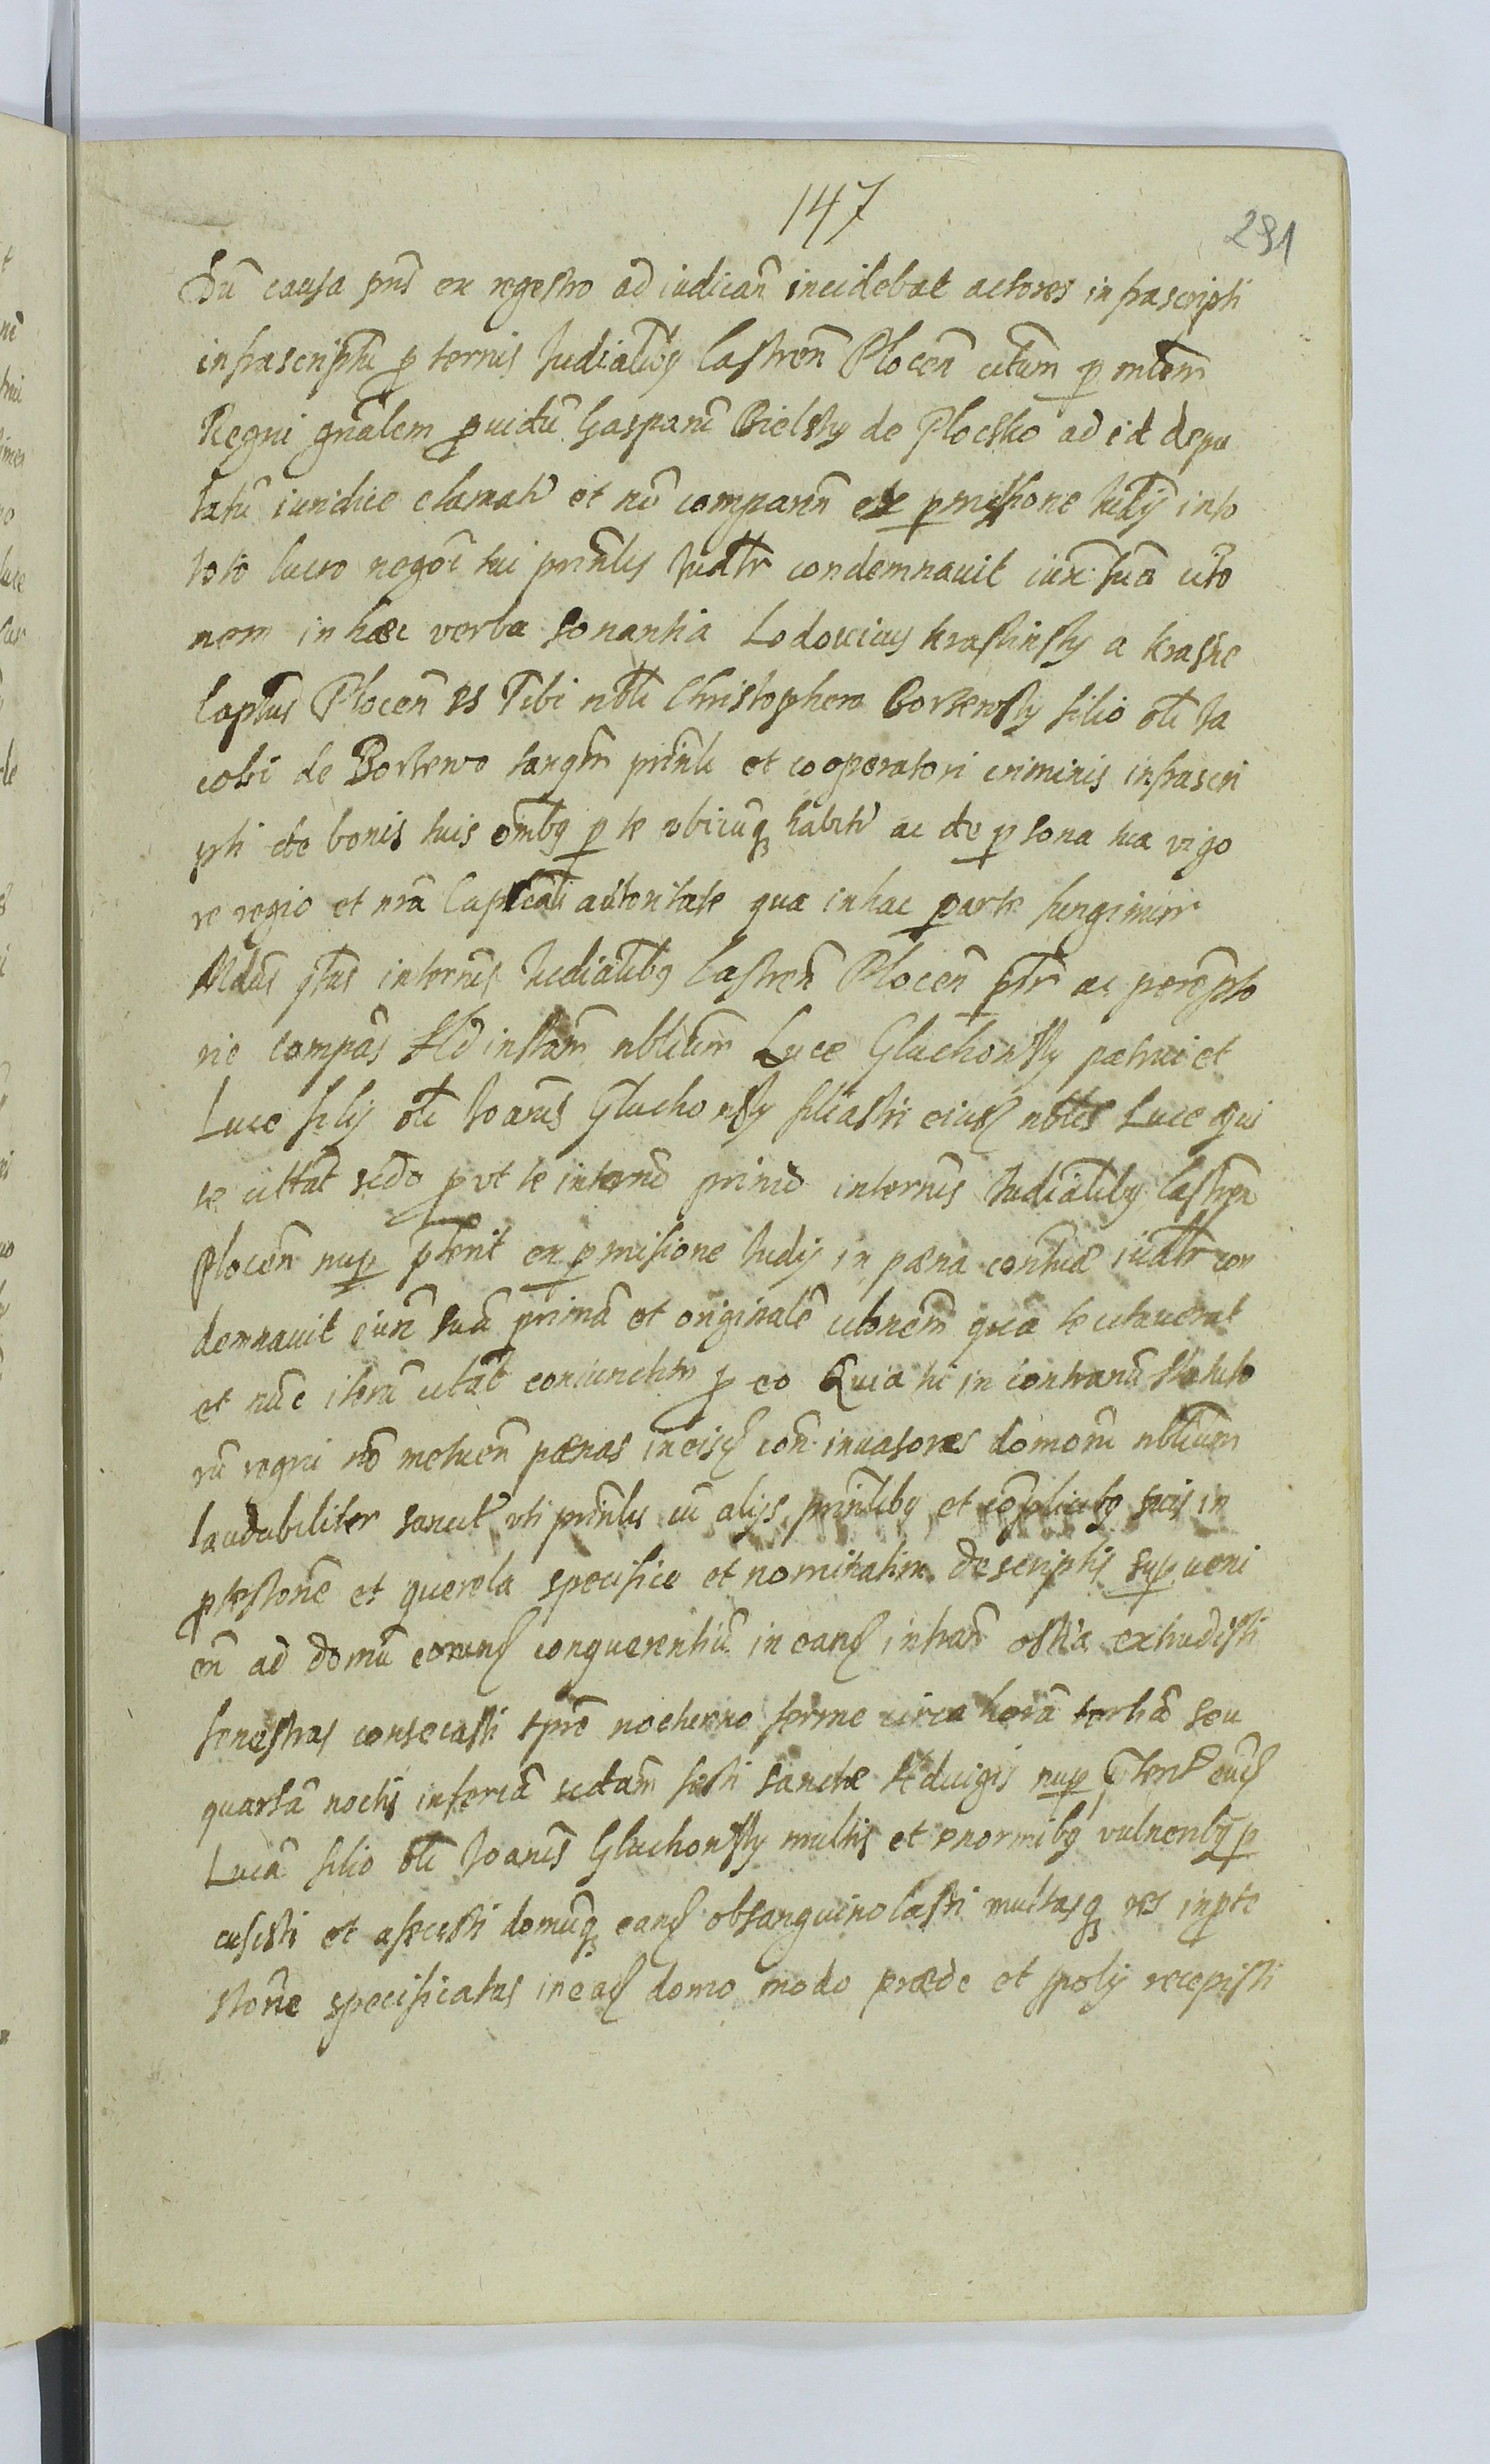 147
291
Dũ causa pñs ex regestro ad iudicañ incidebat actores infrascripti
infrascriptũ p terñis Iudicialibq Castreñ Ploceñ citum p mtem
Regni gñalem puidũ Gasparũ Bielsky de Plocsko ad id depu
tatũ iuridice clamatũ et nõ compareñ ex pmissione Iudÿ in to
toto lucro negoẽ sui prinlis Iudltr condemnauit iux suã cito
nem in hæc verba sonantia Lodouicus Krasinsky a Krasne
Captus Ploceñ es Tibi nbli Christophero Borzewsky filio oli Ia
cobi de Borzewo tanqm prinli et cooperatori criminis infrascri
pti de bonis tuis omĩbq p te vbicũq habitis ac de psona tua vigo
re regio et nrã Capitcali autoritate qua in hac parte fungimur
Mdũs qtus in terñis Iudicialibq Castreñ Ploceñ pltr ac perẽpto
rie compãs Ad instam nblium Luce Gluchowsky patrui et
Luce filÿ oli Ioañis Gluchowsky filiastri eiusd nblis Luce qui
te cittat scdo put te in termo primo in terñis Iudicialibq Castreñ
Ploceñ nup pterit ex pmisione Iudÿ in pæna contuæ iudltr con
demnauit iux suã primã et originalẽ citonem quã te citauerat
et nũc iterũ citat coniunctim p eo Quia tu in contrariũ statuto
rũ regni nõ metueñ pænas in eisd con inuasores domorũ nblium
laudabiliter sancit vti prinlis cũ alijs prinlibq et cõplicibq suis in
ptestone et querela specifice et nominatim descriptis supueni
eñ ad domũ eorund conquerentiũ in eand intrañ ostia extrudisti
fenestras consecasti tpre nocturno ferme circa horã tertiã seu
quartã noctis in feria sedam festi sanctæ Heduigis nup pterit eund
Lucã filio oli Ioañis Gluchowsky multis et enormibq vulneribq p
cusisti et afecisti domũq eand obsanguinolasti multasq res in pte
stone specificatas in ead domo modo præde et spolÿ recepisti